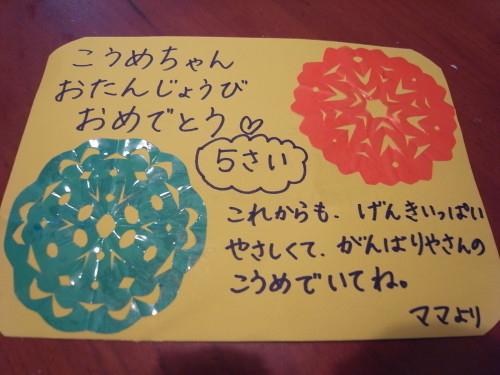 こうめちゃん
おたんじょうび
おめでとう♡
5さい
これからも、げんきいっぱい
やさしくて、がんばりやさんの
こうめでいてね。
ママより